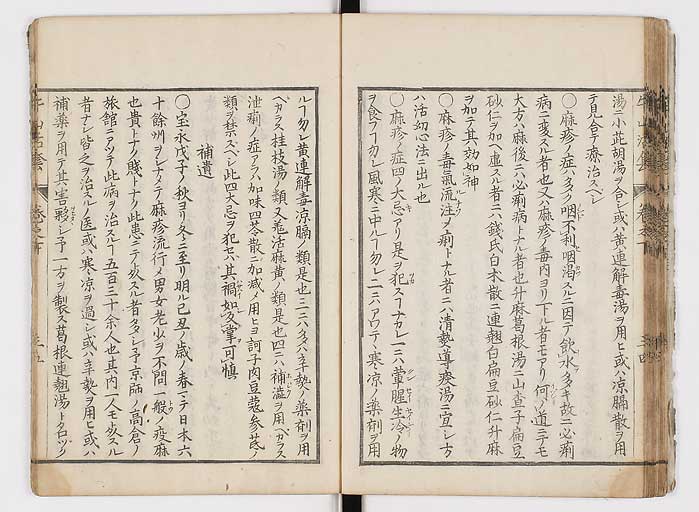 湯ニ小茈胡湯ヲ合シ或ハ黄連解毒湯ヲ用ヒ或ハ凉膈散ヲ用
テ見合テ療治スベシ
〇麻疹ノ症ハ多ク咽不利咽渇スルニ因テ飲水多キ故ニ必痢
病ニ変スル者也又ハ麻疹ノ毒内ヨリ下ル者モアリ何ノ道ニテモ
大方ハ麻後ニハ必痢病トナル者也升麻葛根湯ニ山査子扁豆
砂仁ヲ加ヘ虚スル者ニハ錢氏白朮散ニ連翹白扁豆砂仁升麻
ヲ加テ其効如神
〇麻疹ノ毒氣流注ノ痢トナル者ニハ清熱導痰湯ニ宜シ古
ハ活幼心法ニ出ル也
〇麻疹ノ症四ノ大忌アリ是ヲ犯スヿナカレ一ニハ葷腥生冷ノ物
ヲ食フヿカレ風寒ニ中ルヿ勿レ二ニハアワテヽ寒凉ノ藥剤ヲ用
ルヿ勿レ黄連解毒凉膈ノ類是也三ニハ多ク辛熱ノ藥剤ヲ用
ベカラズ桂枝湯ノ類又羗活麻黄ノ類是也四ニハ補澁ヲ用ベカラス
泄痢ノ症アラハ加味四苓散ニ加減メ用ヒヨ訶子肉豆蔻参茋ノ
類ヲ禁スベシ此四大忌ヲ犯セハ其禍如反掌可慎
補遺
〇宝永戊子ノ秋ヨリ冬ニ至リ明ル己丑ノ歳ノ春ニテ日本六
十餘州ヲシナメテ麻疹流行メ男女老少ヲ不問一般ノ疫麻
也貴トナク賎トナク此患ニテ歿スル者多シ予京師ノ高倉ノ
旅館ニアツテ此病ヲ治スルヿ五百三十余人也其内一人モ歿スル
者ナシ皆之ヲ治スルノ医或ハ寒凉ヲ過シ或ハ辛熱ヲ用ヒ或ハ
補薬ヲ用テ其害夥シ予一方ヲ製ス葛根連翹湯ト名ツク